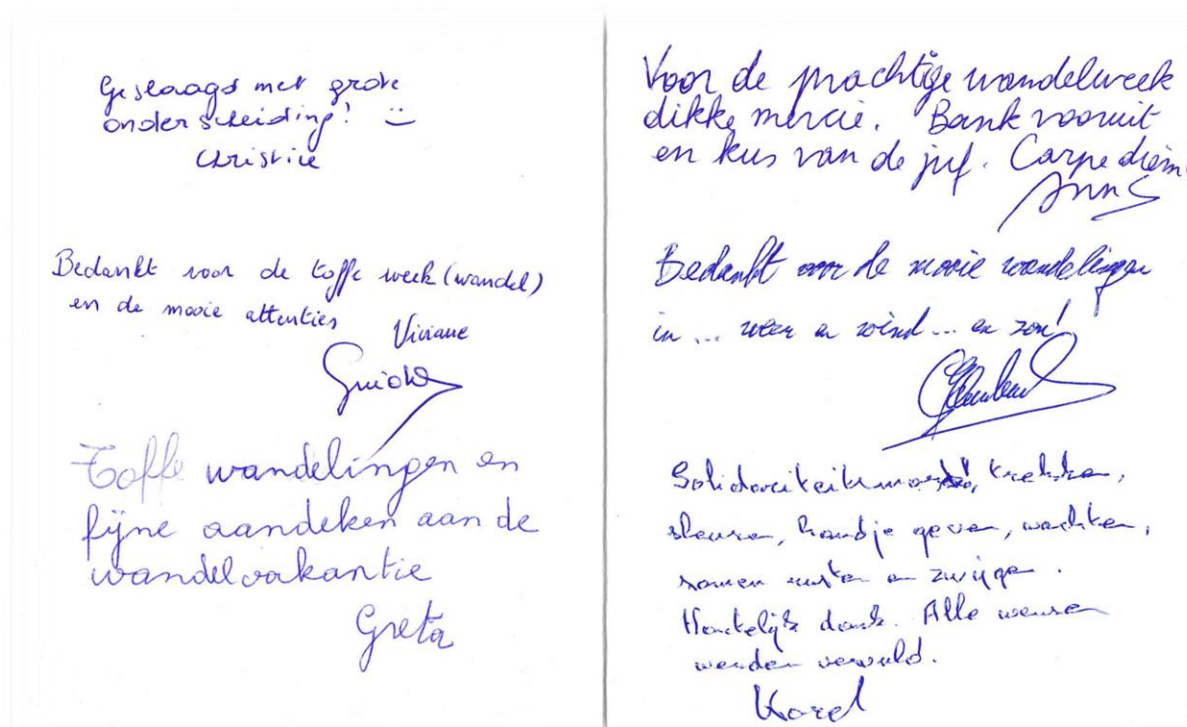 Geslaagd met grote
onderscheiding! :)
Christine
Bedankt voor de toffe week (wandel)
en de mooie attenties
Viviane
Guido
Toffe wandelingen en
fijne aandeken aan de
wandelvakantie
Greta
Voor de prachtige wandelweek
dikke mercie. Bank vooruit
en kus van de juf. Carpe diem
Ann
Bedankt voor de mooie wandelingen
in ... weer en wind ... en zon!
trekken,
sleuren, handje geven, wachten,
samen rusten en zwijgen.
Hartelijk dank. Alle wensen
werden vervuld.
Karel